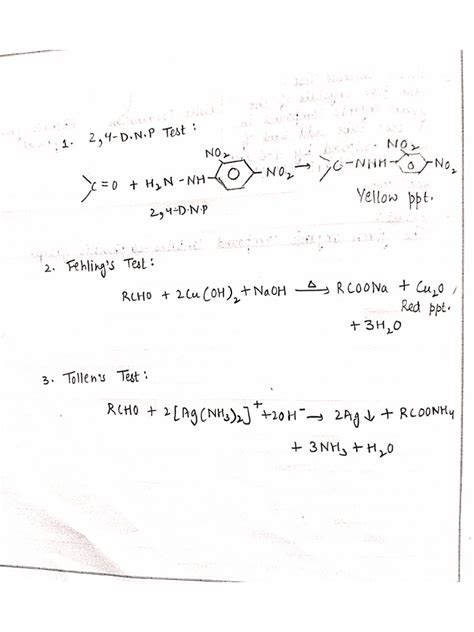 1. 2,4-D.N.P Test:
NO2 NO2
>C=O + H2N-NH- -NO2 → >C-NNH- -NO2
2,4-D.N.P Yellow ppt.
2. Fehling's Test:
RCHO + 2Cu(OH)2 + NaOH —Δ→ RCOONa + Cu2O
Red ppt.
+ 3H2O
3. Tollen's Test:
RCHO + 2[Ag(NH3)2]+ + 2OH- → 2Ag↓ + RCOONH4
+ 3NH3 + H2O